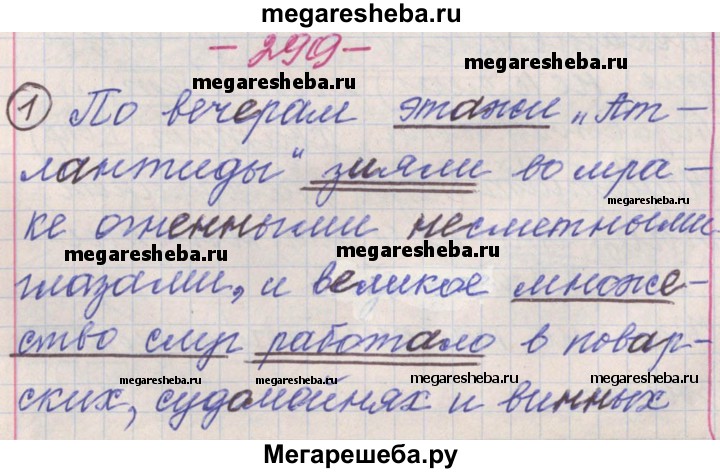 megaresheba.ru
- 299 -
megaresheba.ru
megaresheba.ru
1 По вечерам этажи „Ат-
лантиды" зияли во мра-
megaresheba.ru
ке огненными несметными
megaresheba.ru
megaresheba.ru
глазами, и великое множе-
ство слуг работало в повар-
megaresheba.ru
megaresheba.ru
megaresheba.ru
ских, судомойнях и винных
Мегарешеба.ру